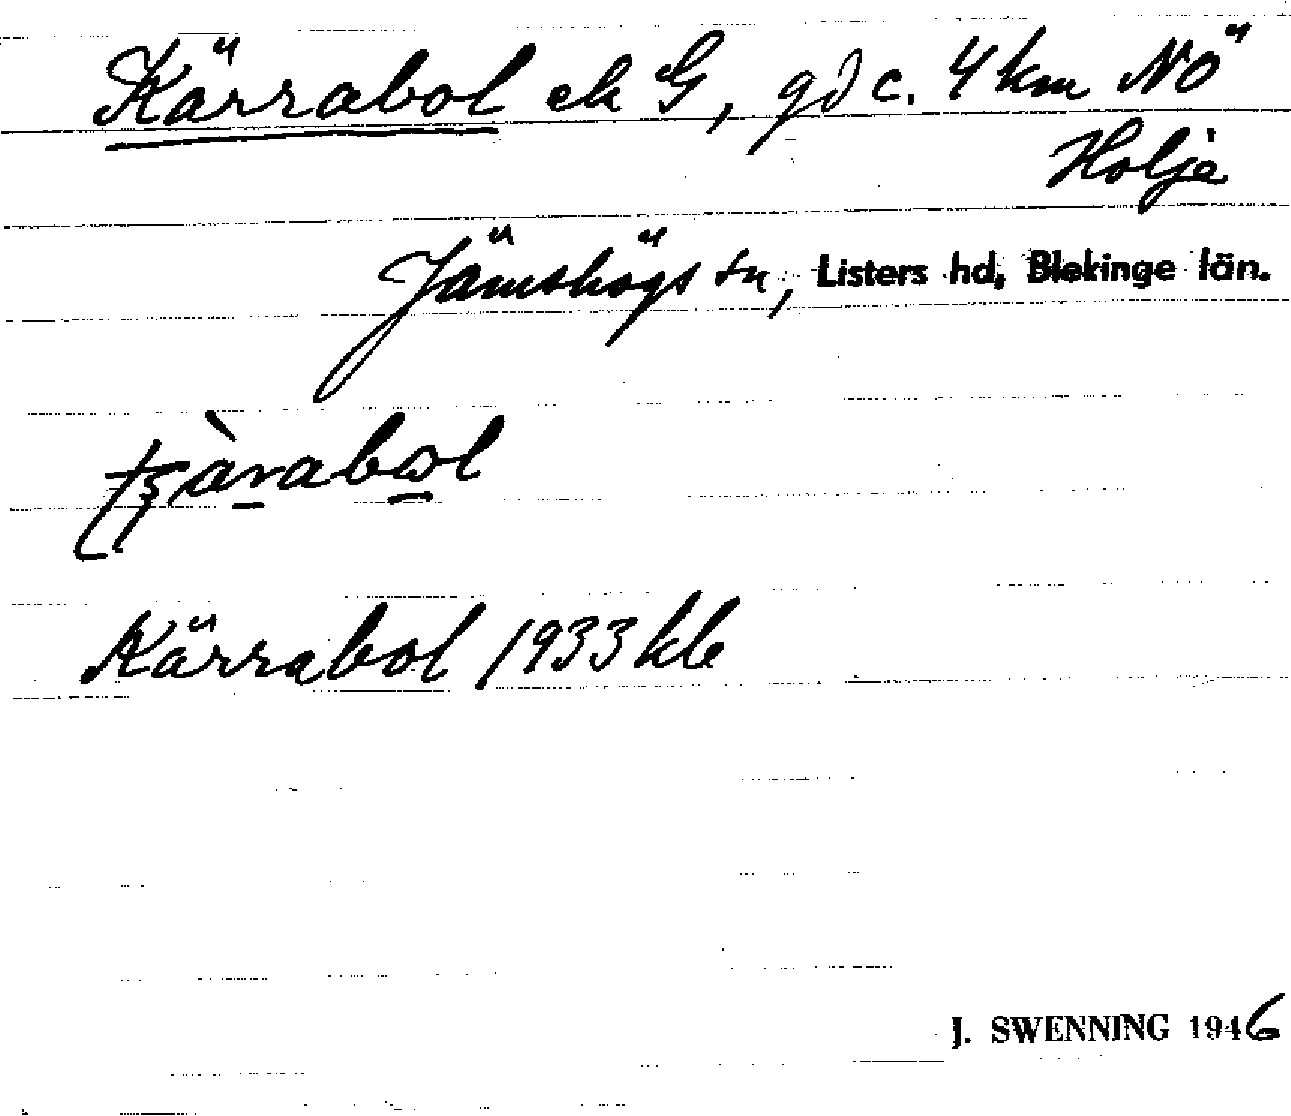 Kärrabol ek G, gd c. 4 km NÖ
Holje
Jämshögs sn, Listers hd, Blekinge län.
Kärrabol 1933 kb
J. SWENNING 1946